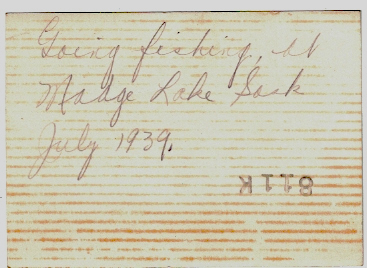 Going fishing, at
Madge Lake Sask
July 1939.
811K